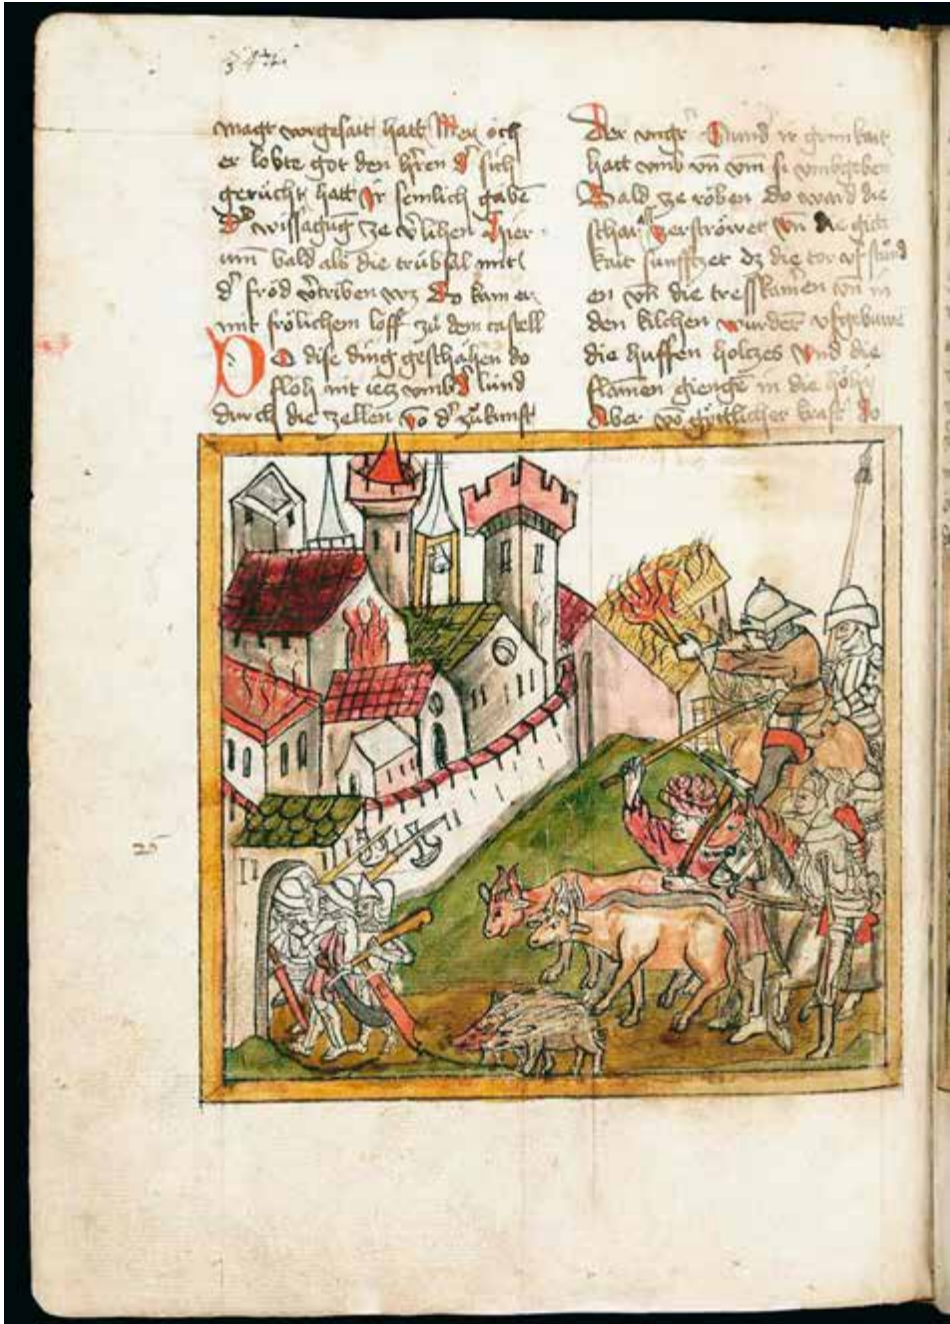 342
magt vorgesait hatt Mey och
er lobte got den hren d' sich
gerücht hatt ir semlich gabe
d' wissagūg ze v'lihen Hier
um bald als die trübsal mitt
d' fröd v'triben wz Do kam er
mit frölichem loff zü dem castell
Do dise ding geschahen do
floh mit iez vmb lund
durch die zellen vō d' zükunft
Der vngr' Vnnd ir grimkait
hatt vmb vn̄ vm si vmbgeben
Bald ze röben do ward die
schar zerströwet vn̄ die gich
kait sunffzet dz die tor vf stünd
en vn̄ die tresskamen vn̄ in
den kilchen wurdēt vfgebuwē
die huffen holczes Vnd die
flamen gienge in die höhi
Aber vō göttlicher kraft do
25